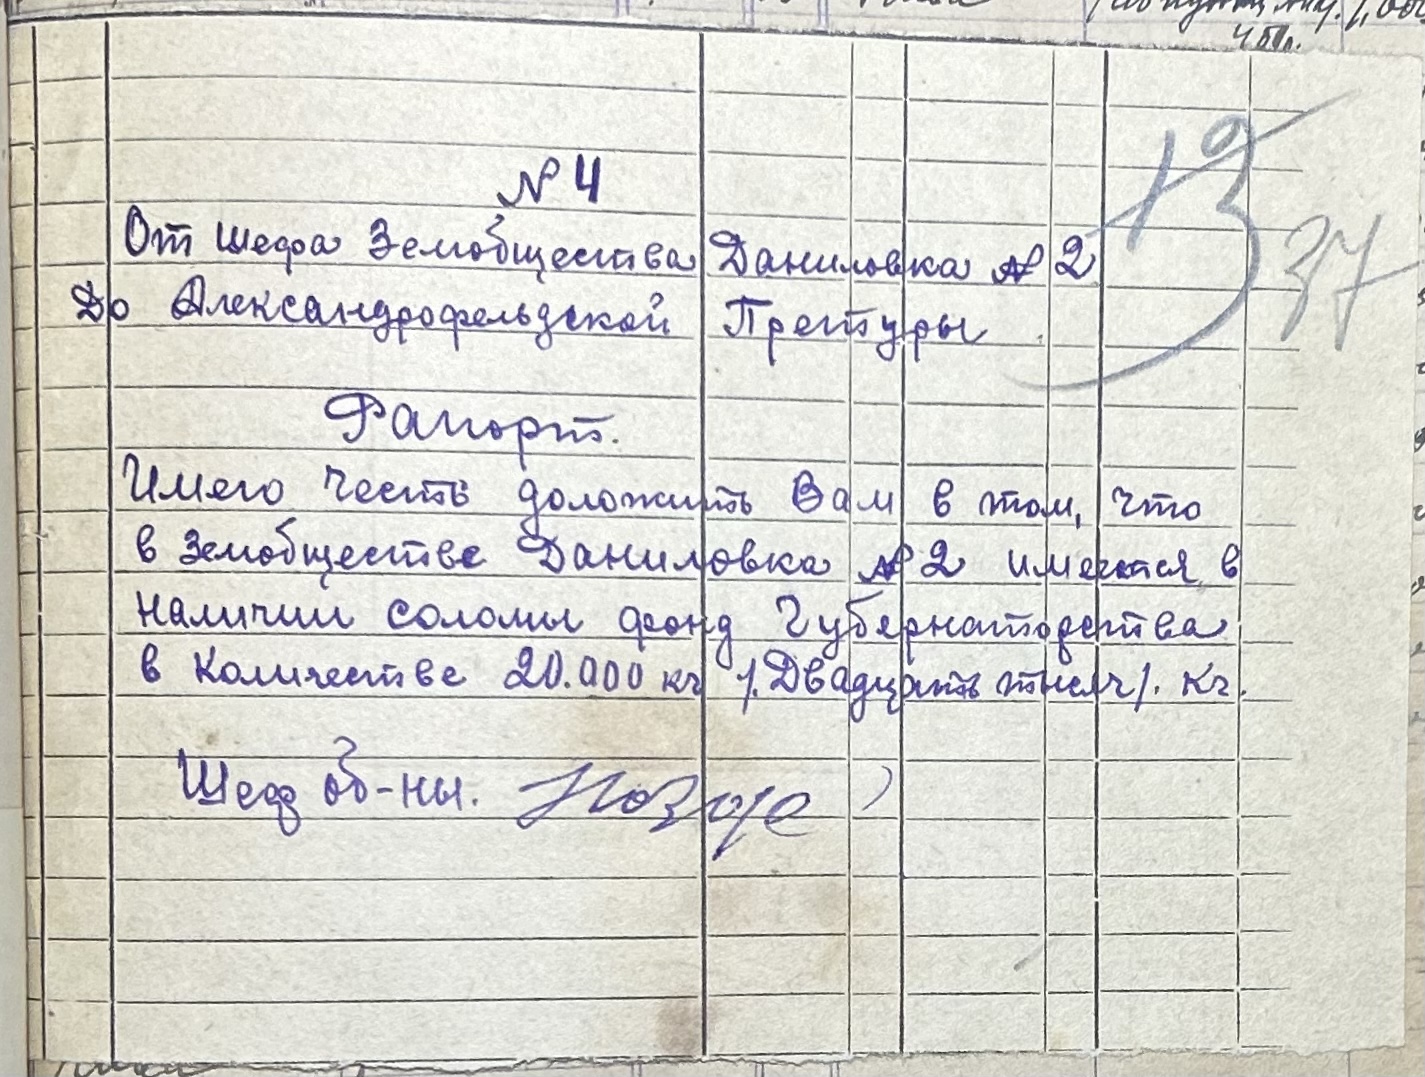 № 4
От шефа Земобщества Даниловка № 2
До Александрофельдской Претуры
Рапорт.
Имею честь доложить Вам в том, что
в Земобществе Даниловка № 2 имеется в
наличии соломы фонд Губернаторства
в количестве 20.000 кг /. Двадцать тысяч/. кг.
Шеф об-ны.
37